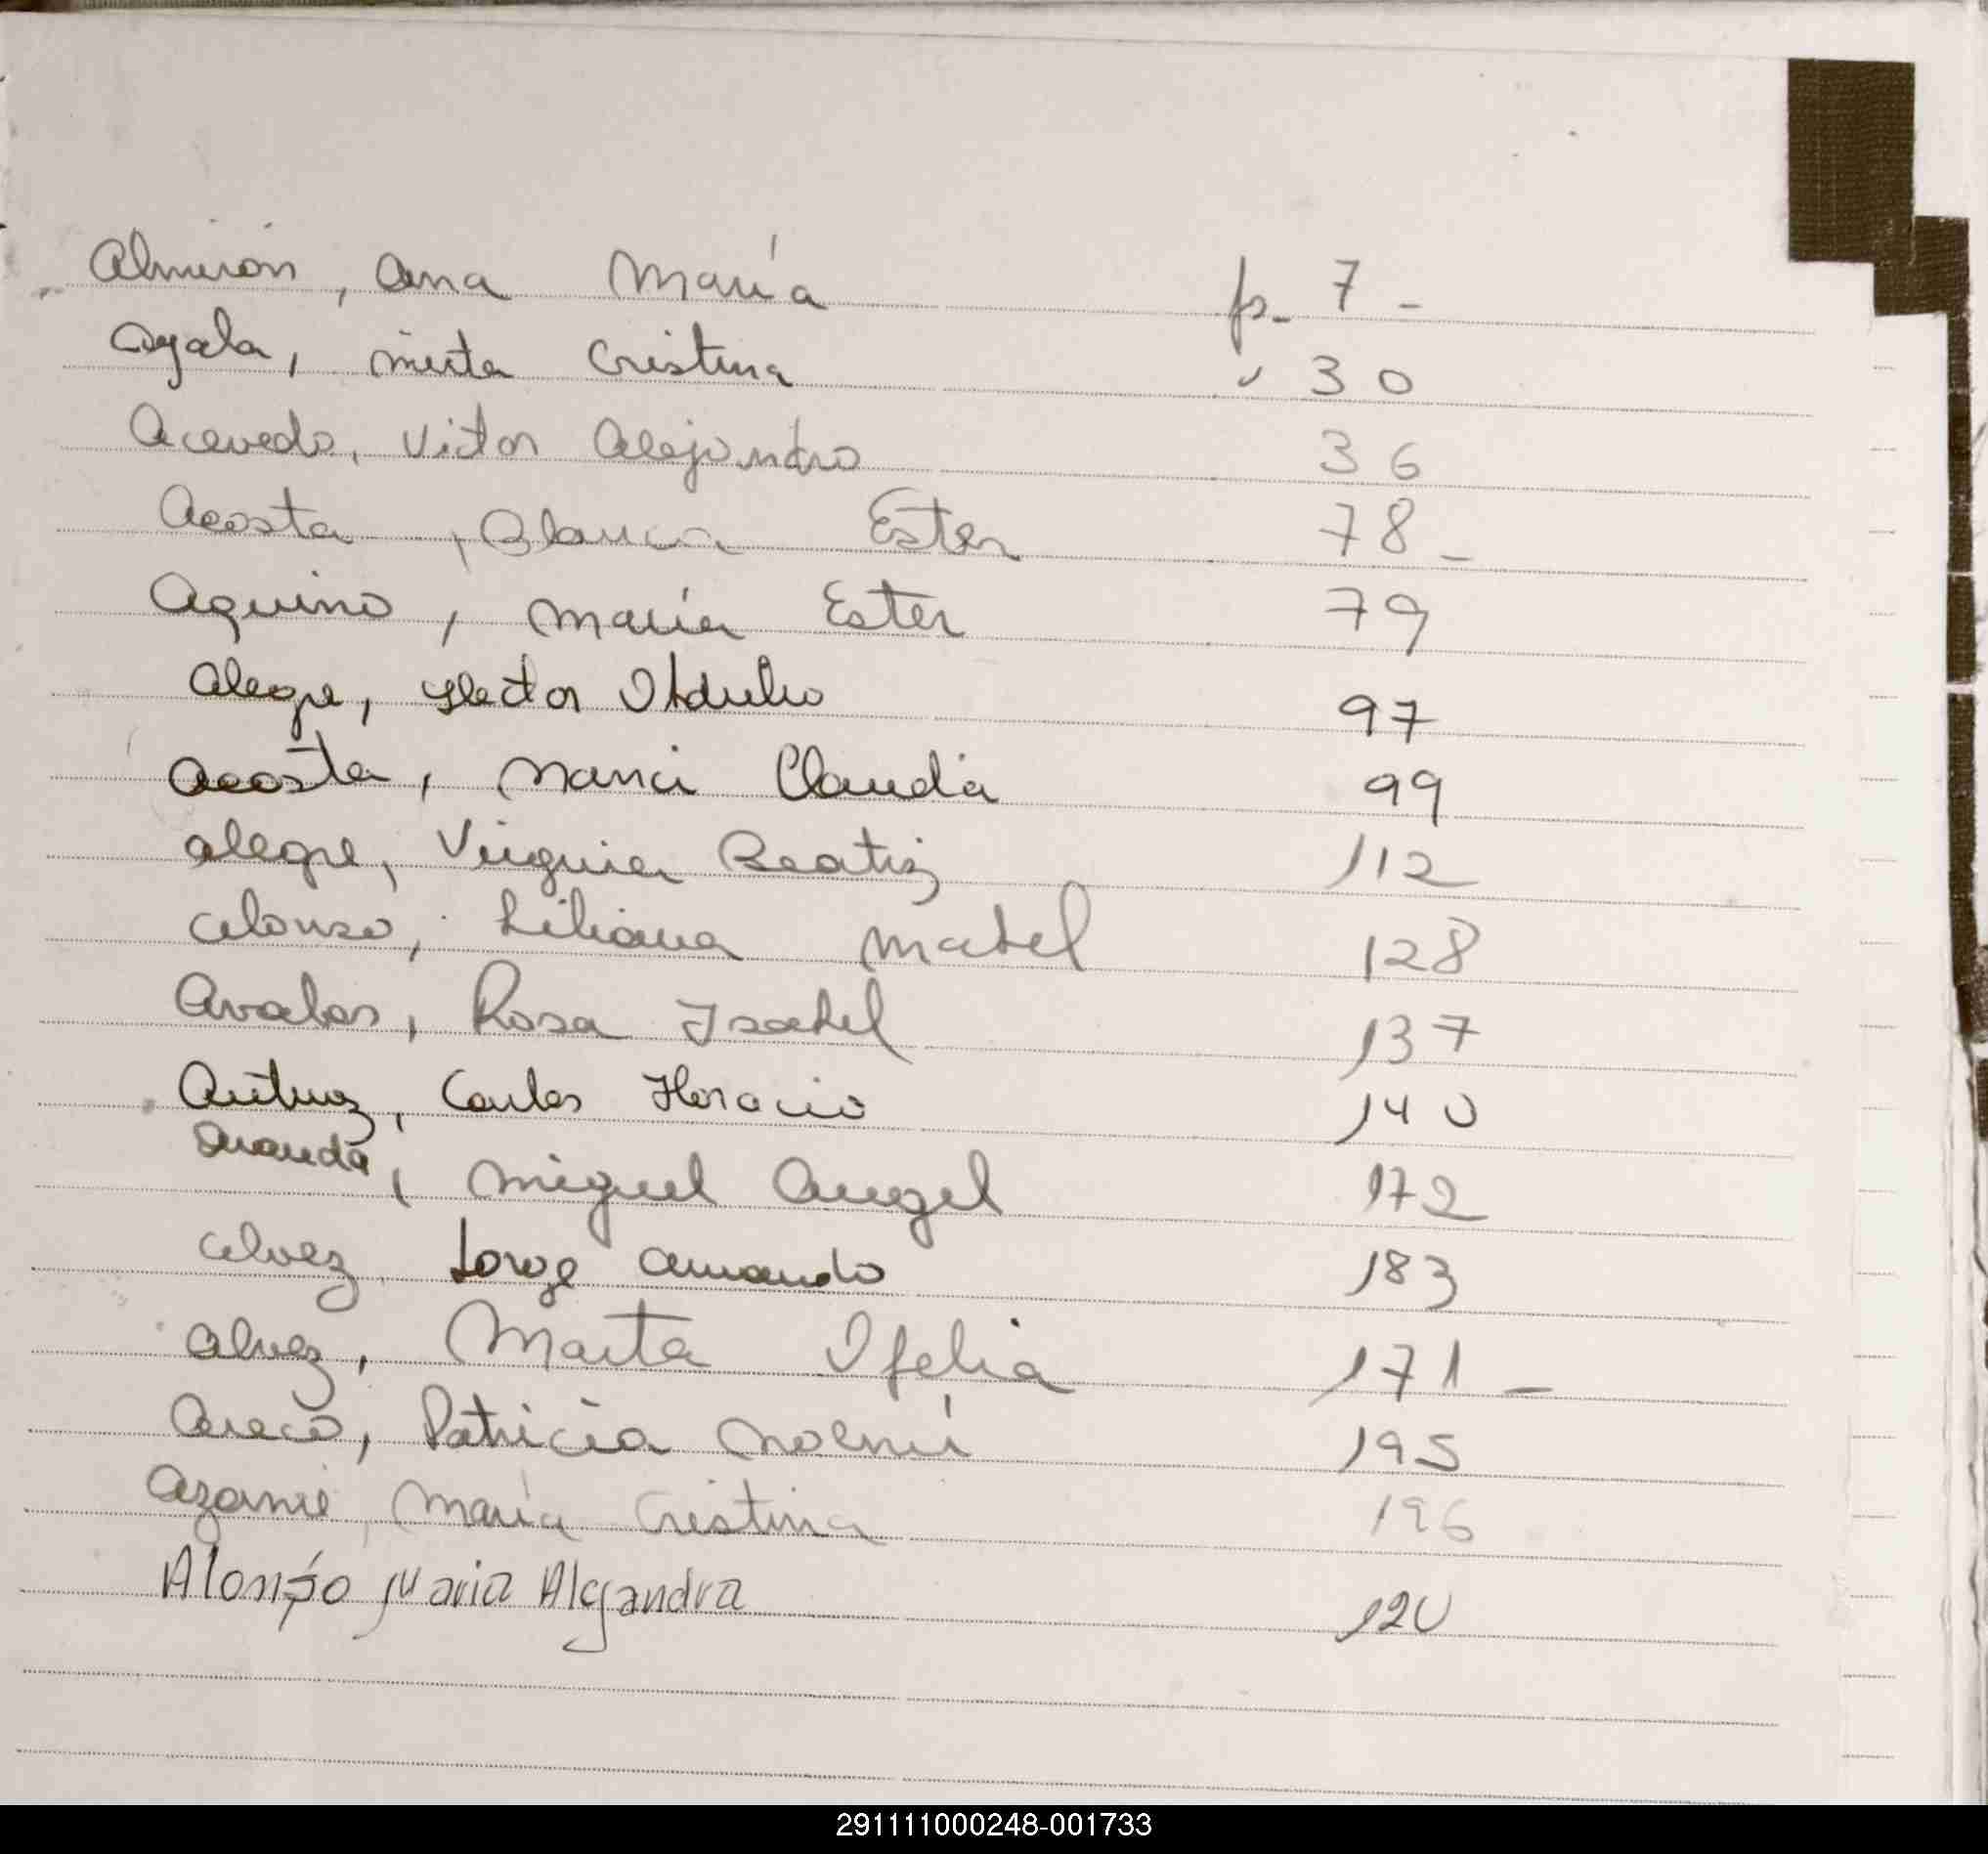 Almirón, Ana María p. 7 -
Ayala, Mirta Cristina " 30
Acevedo, Victor Alejandro 36
Acosta, Blanca Ester 78 -
Aquino, María Ester 79
Alegre, Hector 97
Acosta, Nanci Claudia 99
Alegre, Virginia Beatriz 112
Alonso, Liliana Mabel 128
Avalos, Rosa Isabel 137
Carlos Horacio 140
Aranda, Miguel Angel 172
Alvez Jorge Armando 183
Alvez, Marta Ofelia 171 -
Areco, Patricia Noemí 195
María Cristina 196
Alonso Maria Alejandra 120
291111000248-001733